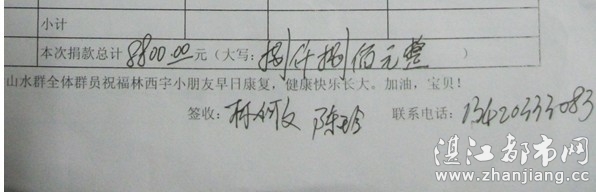 小计
本次捐款总计 8800.00 元（大写：捌仟捌佰元整）
山水群全体群员祝福林西字小朋友早日康复，健康快乐长大。加油，宝贝！
签收： 联系电话：13420333083
湛江都市网
www.zhanjiang.cc